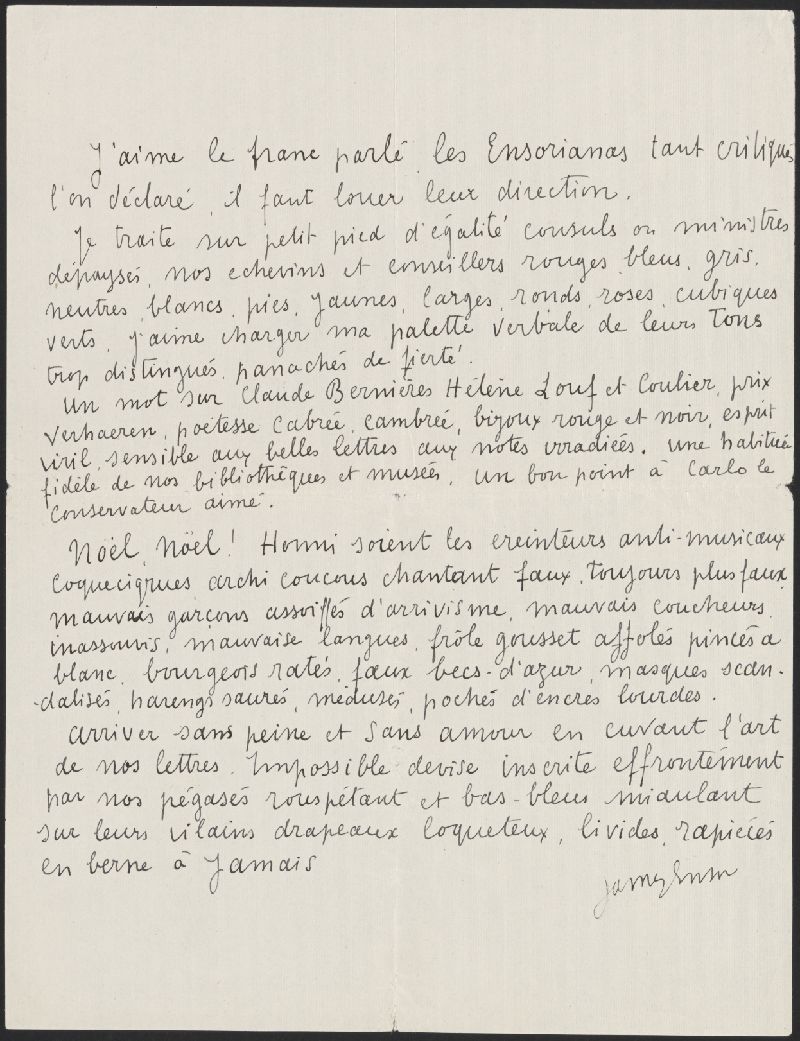 J'aime le franc parlé, les Ensorianas tant critiqués
l'on déclaré, il faut louer leur direction.
Je traite sur petit pied d'égalité consuls ou ministres
dépaysés, nos echevins et conseillers rouges, bleus, gris,
neutres, blancs, pies, jaunes, larges, ronds, roses, cubiques
verts, j'aime charger ma palette verbale de leurs tons
trop distingués, panachés de fierté.
Un mot sur Claude Bernières Hélène Louf et Coulier, prix
Verhaeren, poètesse cabrée, cambrée, bijoux rouge et noir, esprit
viril, sensible aux belles lettres aux notes irradiéés. une habituée
fidèle de nos bibliothèques et musées. un bon point à Carlo le
conservateur aimé.
Noël, Noël! Honni soient les ereinteurs anti-musicaux
Coquecigrues archi coucous chantant faux, toujours plus faux,
mauvais garçons assoiffés d'arrivisme, mauvais coucheurs
inassouvis, mauvaise langues, frôle gousset affolés pincés a
blanc, bourgeois ratés, faux becs-d'azur, masques scan-
-dalisés, harengs saurés, méduses, pochés d'encres lourdes.
arriver sans peine et sans amour en cuvant l'art
de nos lettres. Impossible devise inscrite effrontément
par nos pégasés rouspétant et bas-bleus miaulant
sur leurs vilains drapeaux loqueteux, livides, rapiécés
en berne à Jamais
James Ensor